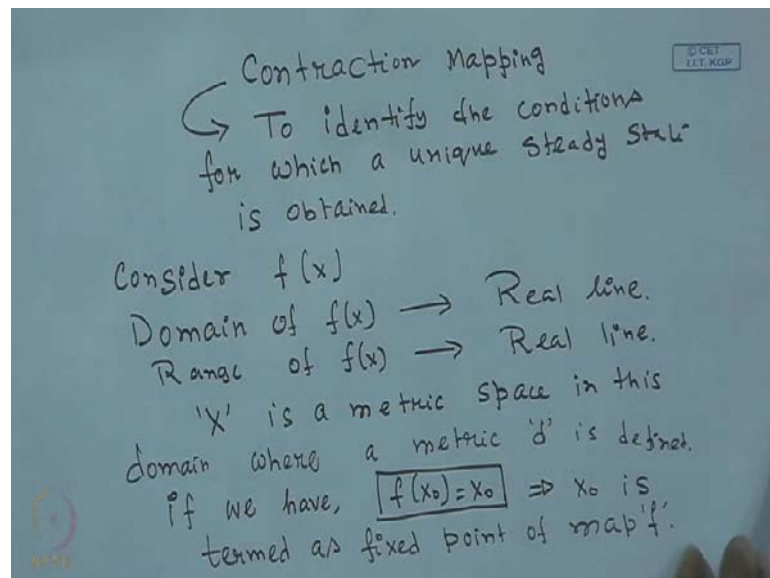 Contraction Mapping
© CET
I.I.T. KGP
→ To identify the conditions
for which a unique steady state
is obtained.
Consider f(x)
Domain of f(x) → Real line.
Range of f(x) → Real line.
'X' is a metric space in this
domain where a metric 'd' is defined.
if we have, f(x₀) = x₀ ⇒ x₀ is
termed as fixed point of map 'f'.